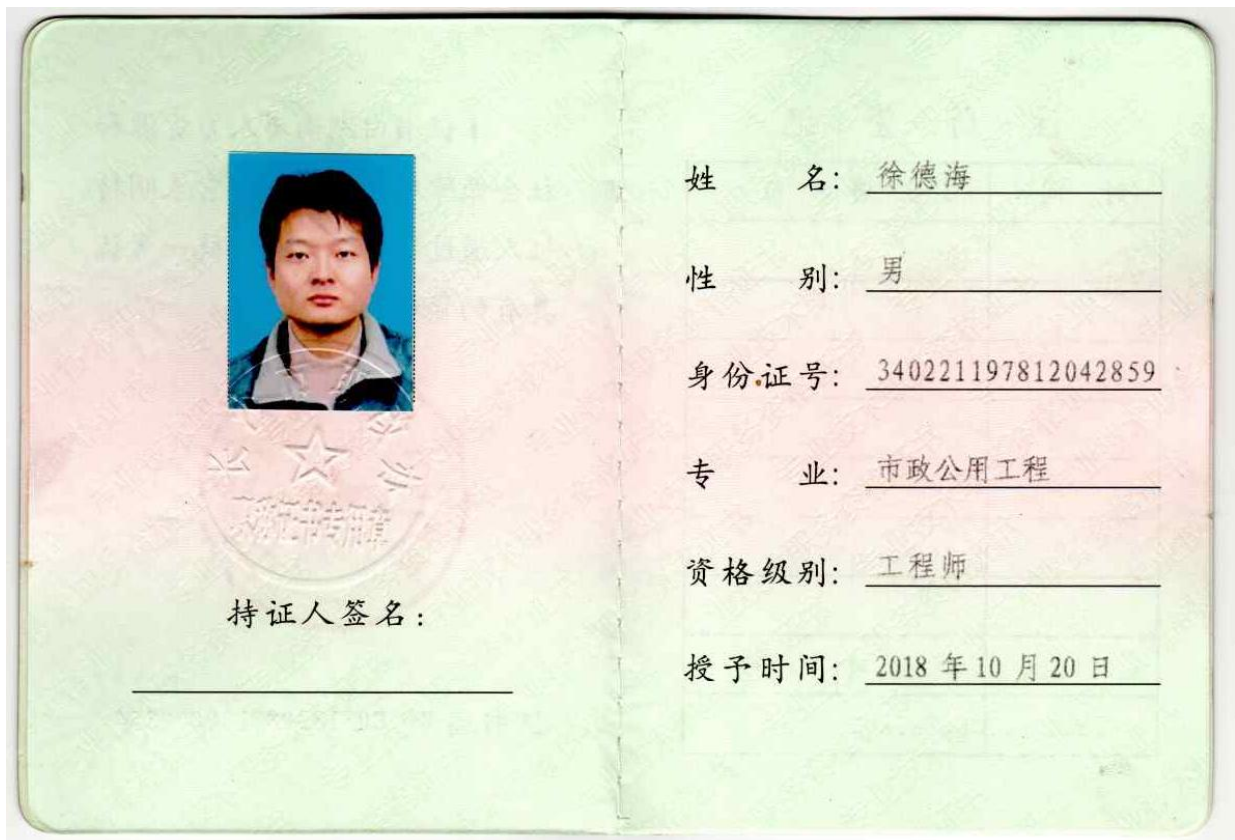 持证人签名：
姓 名: 徐德海
性 别: 男
身份证号: 340221197812042859
专 业: 市政公用工程
资格级别: 工程师
授予时间: 2018 年 10 月 20 日